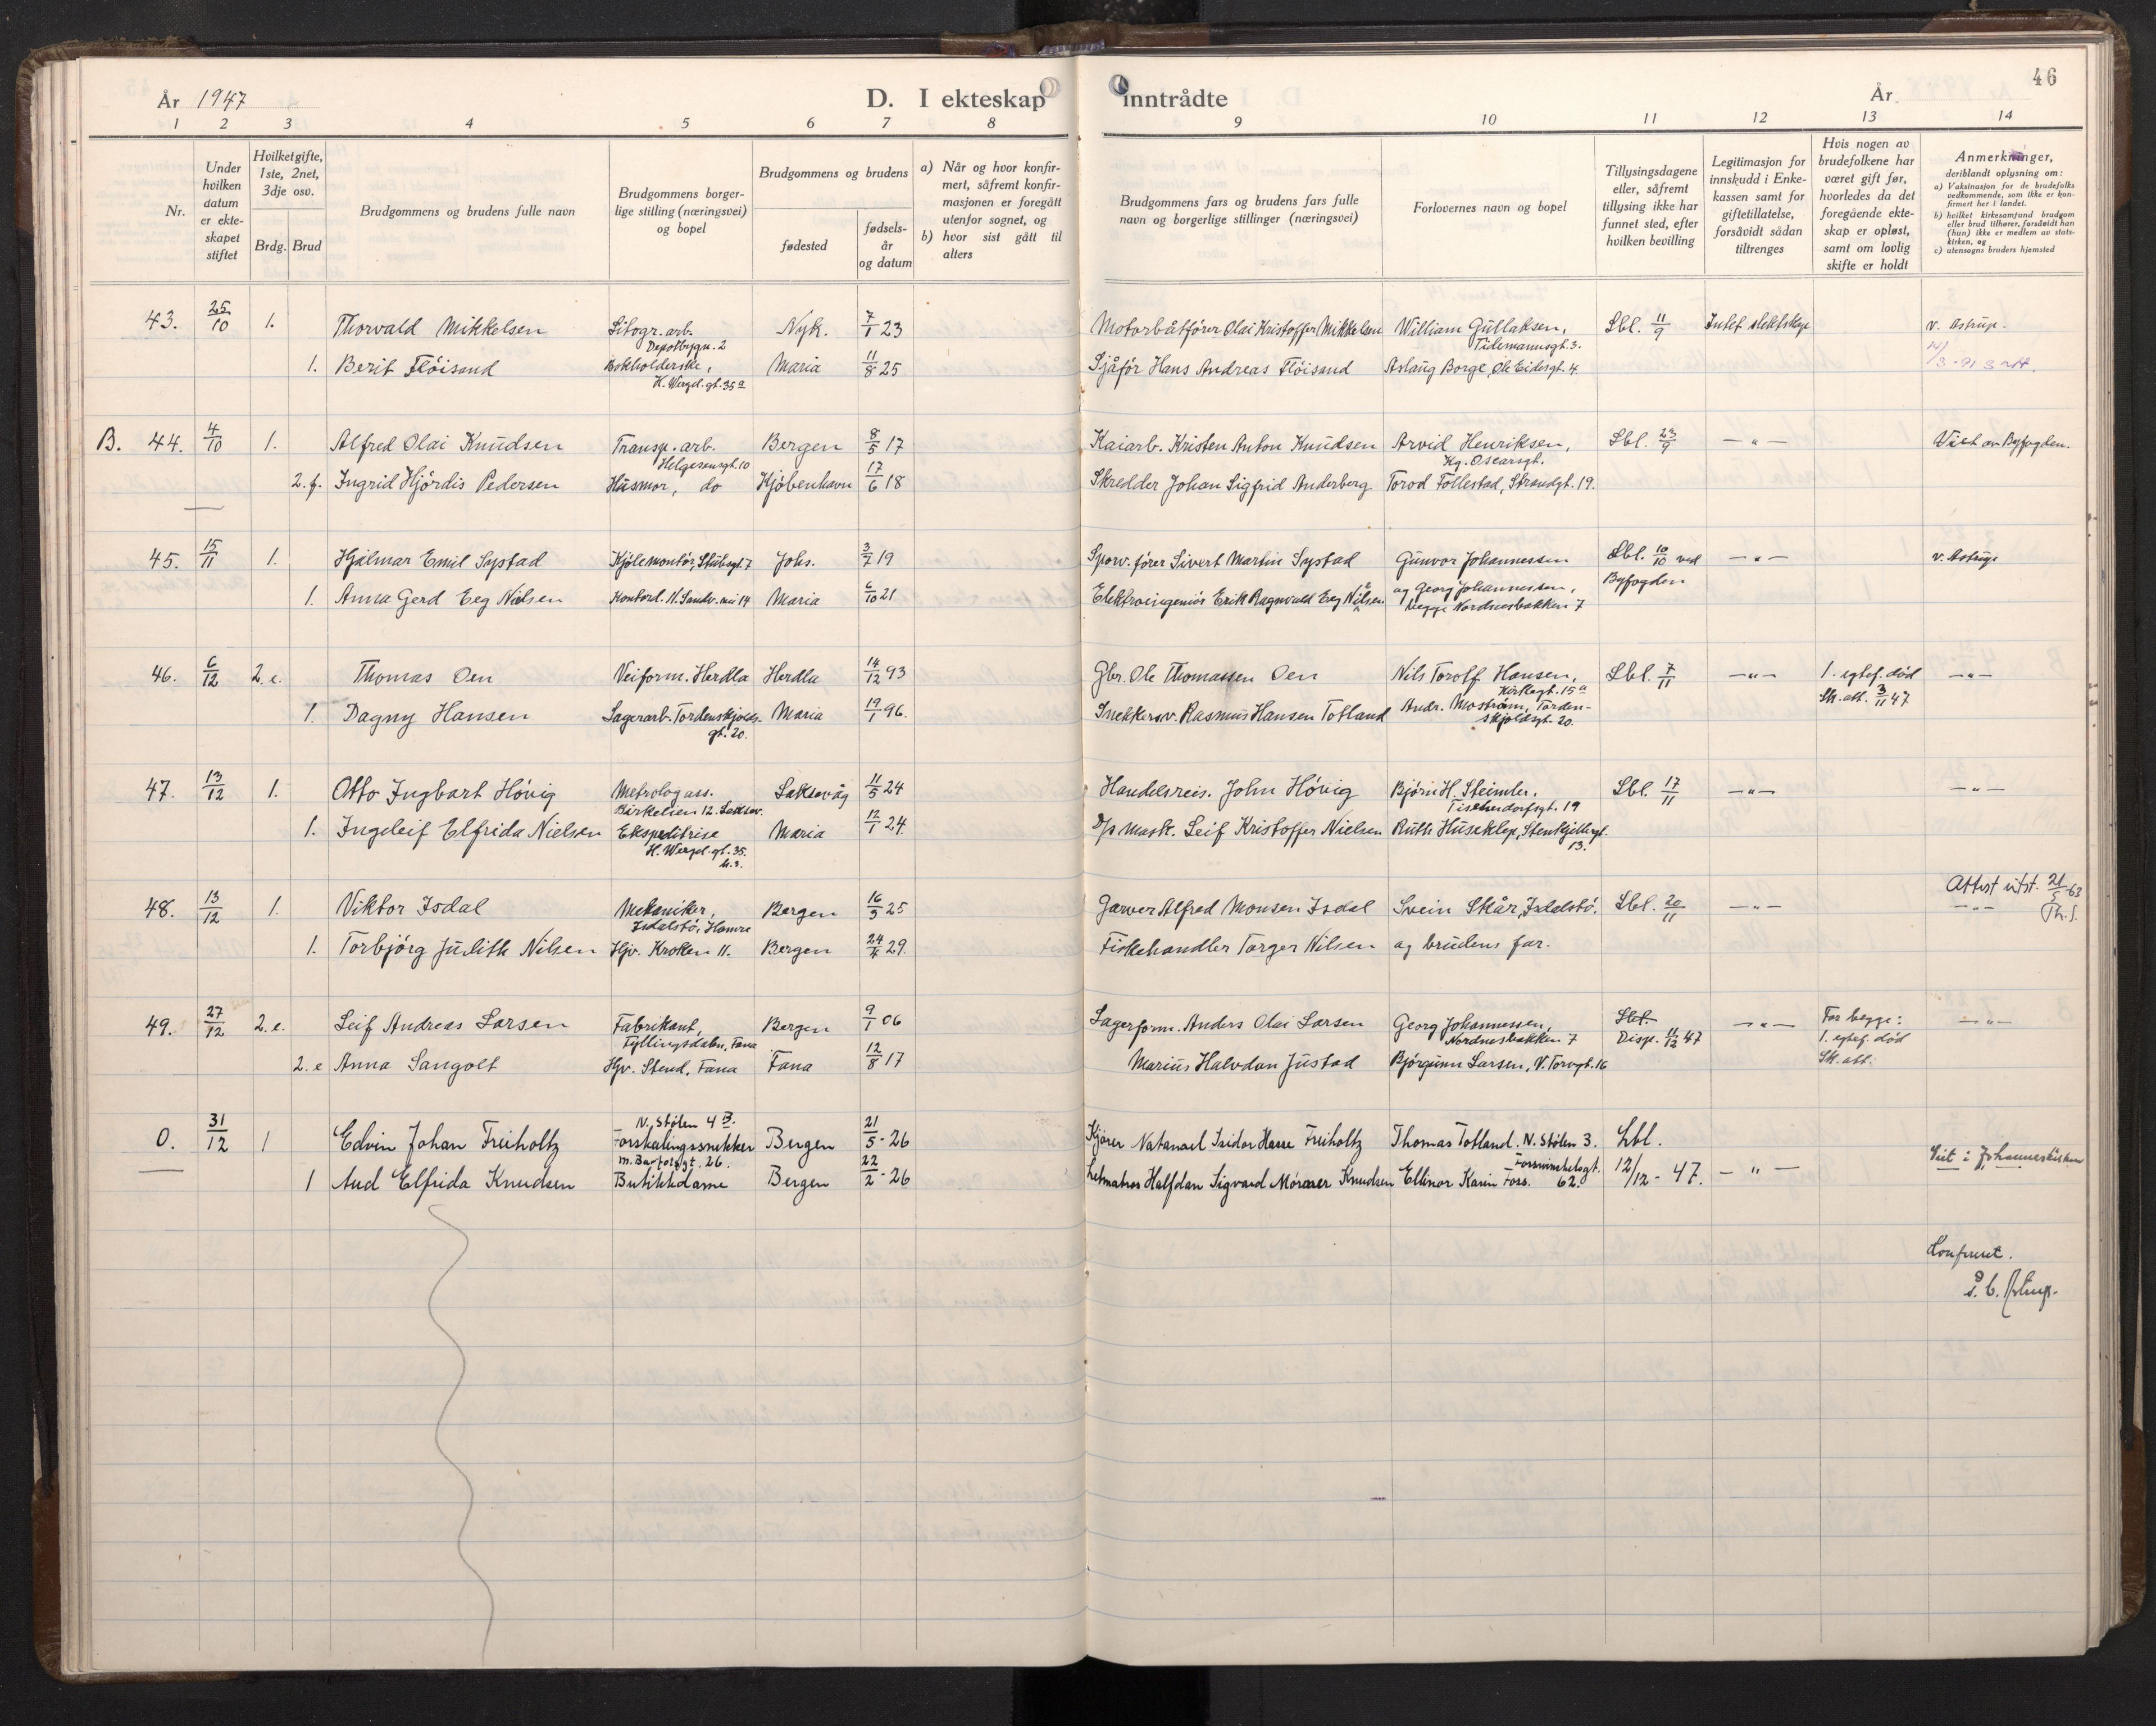 46
År 1947
D. I ekteskap inntrådte
År
1 2 3 4 5 6 7 8 9 10 11 12 13 14
Nr.
Under hvilken datum er ekteskapet stiftet
Hvilket gifte, 1ste, 2net, 3dje osv.
Brdg. Brud
Brudgommens og brudens fulle navn
Brudgommens borgerlige stilling (næringsvei) og bopel
Brudgommens og brudens
fødested
fødselsår og datum
a) Når og hvor konfirmert, såfremt konfirmasjonen er foregått utenfor sognet, og
b) hvor sist gått til alters
Brudgommens fars og brudens fars fulle navn og borgerlige stillinger (næringsvei)
Forlovernes navn og bopel
Tillysingsdagene eller, såfremt tillysing ikke har funnet sted, efter hvilken bevilling
Legitimasjon for innskudd i Enkekassen samt for giftetillatelse, forsåvidt sådan tiltrenges
Hvis nogen av brudefolkene har været gift før, hvorledes da det foregående ekteskap er opløst, samt om lovlig skifte er holdt
Anmerkninger, deriblandt oplysning om:
a) Vaksinasjon for de brudefolks vedkommende, som ikke er konfirmert her i landet.
b) hvilket kirkesamfund brudgom eller brud tilhører, forsåvidt han (hun) ikke er medlem av statskirken, og
c) utensogns bruders hjemsted
43. 25/10 1. Thorvald Mikkelsen Litogr. arb. Depotbygn. 2 Nyk. 7/1 23 Motorbåtfører Olai Kristoffer Mikkelsen William Gullaksen, Tidemannsgt. 3. Lbl. 11/9 Intet slektskap v. Astrup.
1. Berit Fløisand Bokholderske, H. Wergel. gt. 35a Maria 11/8 25 Sjåfør Hans Andreas Fløisand Aslaug Borge, Ole Eidesgt. 4.
B. 44. 4/10 1. Alfred Olai Knudsen Transp. arb. Helgesensgt. 10 Bergen 8/5 17 Kaiarb. Kristen Anton Knudsen Arvid Henriksen, Kg. Oscarsgt. Lbl. 23/9 — " — Viet av Byfogden.
2. f. Ingrid Hjørdis Pedersen Husmor, do Kjøbenhavn 17/6 18 Skredder Johan Sigfrid Anderberg Torod Follestad, Strandgt. 19.
45. 15/11 1. Hjalmar Emil Systad Kjølemontør, Stubsgt. 7 Johs. 3/7 19 Sporv. fører Sivert Martin Systad Gunvor Johannessen Lbl. 10/10 ved Byfogden — " — v. Astrup
1. Anna Gerd Eeg Nielsen Kontord. N. Sandv. vei 14 Maria 6/10 21 Elektroingeniør Erik Ragnvald Eeg Nilsen og Georg Johannessen, begge Nordnesbakken 7
46. 6/12 2. e. Thomas Oen Veiform. Herdla Herdla 14/12 93 Gbr. Ole Thomassen Oen Nils Torolf Hansen, Kirkegt. 15a Lbl. 7/11 — " — 1. egtef. død Sk. att. 3/11 47 — " —
1. Dagny Hansen Lagerarb. Tordenskjolds-gt. 20. Maria 19/1 96. Snekkersv. Rasmus Hansen Totland Andr. Mostrøm, Tordenskjoldsgt. 20.
47. 13/12 1. Otto Ingbart Høvig Metrolog ass. Birkelien 12. Laksev. Laksevåg 11/5 24 Handelsreis. John Høvig Bjørn H. Steimler, Tischendorfsgt. 19 Lbl. 17/11 — " — — " —
1. Ingeleif Elfrida Nielsen Ekspeditrise H. Wergel. gt. 35. Maria 12/1 24. D/s Mask. Leif Kristoffer Nielsen Ruth Huseklep, Stenkjellergt. 13.
48. 13/12 1. Viktor Isdal Mekaniker, Isdalstø, Hamre Bergen 16/3 25 Garver Alfred Monsen Isdal Svein Skår, Isdalstø. Lbl. 20/11 — " — Attest utst. 21/5-63 — " — Th. S.
1. Torbjørg Judith Nilsen Hjv. Kroken 11. Bergen 24/4 29. Fiskehandler Torger Nilsen og brudens far.
49. 27/12 2. e. Leif Andreas Larsen Fabrikant, Fyllingsdalen, Fana Bergen 9/1 06 Lagerform. Anders Olai Larsen Georg Johannessen, Nordnesbakken 7 Lbl. Disp. 11/12 47 — " — For begge: 1. egtef. død Sk. att. — " —
2. e Anna Sangolt Hjv. Stend, Fana Fana 12/8 17 Marius Halvdan Justad Bjørgunn Larsen, V. Torvgt. 16
0. 31/12 1 Edvin Johan Freiholtz N. Stølen 4 B. Forskalingssnekker Bergen 21/5 - 26 Kjører Natanael Isidor Harre Freiholtz Thomas Totland. N. Stølen 3. Lbl. 12/12 - 47. — " — Viet i Johanneskirken
1 Aud Elfrida Knudsen Butikkdame Bergen 22/2 - 26 Letmatros Halfdan Sigvard Mørner Knudsen Ellinor Karin Foss. Formannsbelsgt. 62.
Konferert.